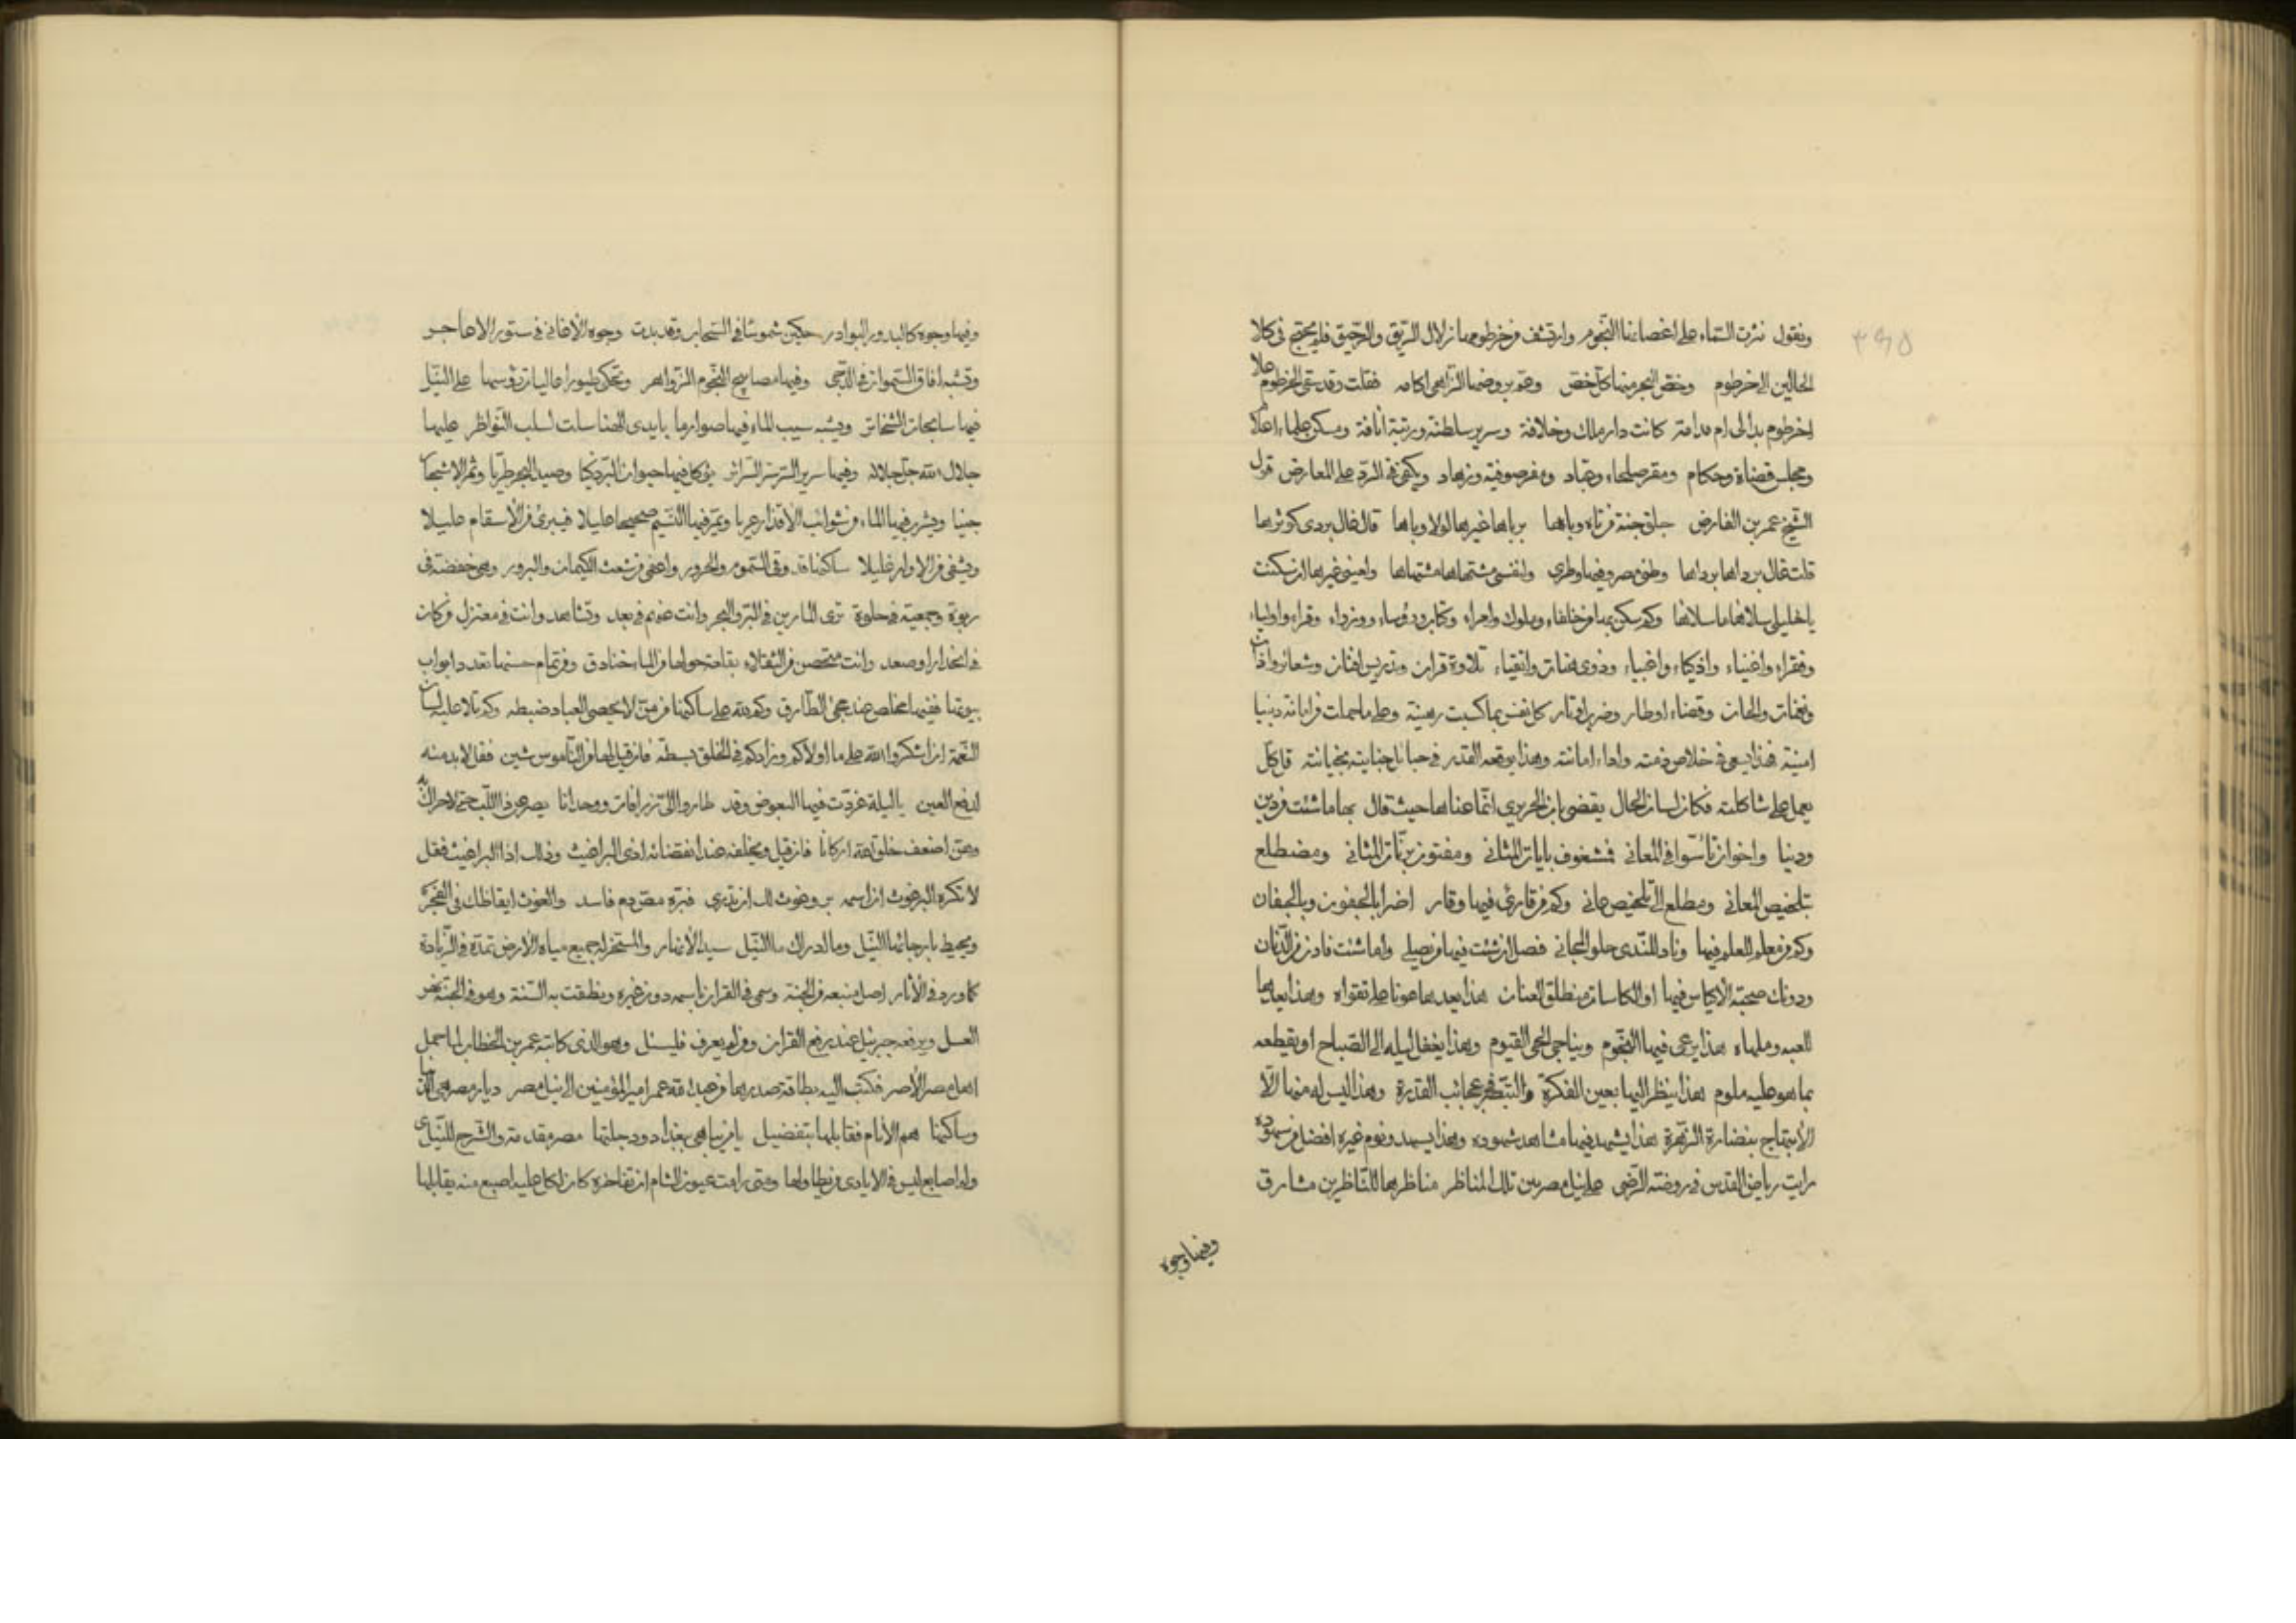 ونقول نثرت السماء على اغصاننا النجوم وارتشف من خرطومها زلال الريق والرحيق فلم يحتج في كلا
الحالين الى خرطوم وخض البحر منها كل خض وهم بروضها الزاهي اكامه فقلت وقد سقى الخرطوم
اخرطوم بدا لى ام مدامة كانت دار ملك وخلافة وسرير سلطنة ورتبة انافة ومسكن علماء اعلام
ومجلس قضاة وحكام ومقر صلحاء وعباد ومفر صوفية وزهاد ويكفي في الرد على المعارض قول
الشيخ عمر بن الفارض جلق جنة من تاه وباها برباها غيرها لولا وباها قال غال بردى كوثرها
قلت غال برداها برداها وطنى مصر وفيها وطري ولنفسى مشتهاها مشتهاها ولعيني غيرها ان سكنت
يا خليلي سلاها ما سلاها وكم سكن بها من خلفاء وملوك وامراء وكبار ورؤساء ووزراء وقراء واولياء
وفقراء واغنياء واذكياء واغبياء وذوى هنات واتقياء تلاوة قران وتدريس افنان وشعائر واذان
ونغمات والحان وقضاء اوطار وضرب اوتار كل نفس بما كسبت رهينة وعلى ما حملت من امانة دينها
امينة فهذا يسعى في خلاص ذمته واداء امانته وهذا يرقعه القدر في حبالا جنايته بخيانته قل كل
يعمل على شاكلته فكان لسان الحال يقضي بان الحريري انما عناها حيث قال بها ما شئت من دين
ودنيا واخوان تأسوا في المعاني فمشغوف بايات المثاني ومفتون برنات المثاني ومضطلع
بتلخيص المعاني ومطلع الى تلخيص عاني وكم من قارئ فيها وقار اضرا بالجفون وبالجفان
وكم من معلم للعلم فيها وناد للندى حلو المجاني فصل ان شئت فيها من يصلي واما شئت فادن من الدنان
ودونك صحبة الاكياس فيها او الكاسات منطلق العنان هذا يعدها عونا على تقواه وهذا يعدها
للعبه وملهاه هذا يرعى فيها النجوم ويناجي الحي القيوم وهذا يغفل ليله الى الصباح او يقطعه
بما هو عليه ملوم هذا ينظر اليها بعين الفكرة والتبصر في عجائب القدرة وهذا ليس له منها الا
الابتهاج بنضارة الزهرة هذا يشهد فيها مشاهد شهوده وهذا يسهد ونوم غيره افضل من سهوده
رايت رياض القدس في روضة الرضى على نيل مصر بين تلك المناظر مناظرها للناظرين مشارق
وفيها وجوه
وفيها وجوه كالبدور البوادر حكين شموسا في السحاب وقد بدت وجوه الاغاني في ستور الاهاجر
وتشبه افاق السموات في الدجى وفيها مصابيح النجوم الزواهر وتحكي طيورا عاليات رؤسها على النيل
فيها سابحات الشخاتر ويشبه سيب الماء فيها صوارما بايدى الهنا سلت لسلب النواظر عليها
جلال الله جل جلاله وفيها سرير السر سر السرائر يؤكل فيها حيوان البر ذكيا وصيد البحر طريا وثمر الاشجار
جنيا ويشرب فيها الماء من شوائب الاقذار عريا ويمر فيها النسيم صحيحا عليلا فيبرئ من الاسقام عليلا
ويشفي من الاوار غليلا ساكنها قد وقي السموم والحرور واعفي من شعث الكيمان والبرور وهي خفضة في
ربوة وجمعية في خلوة ترى المارين في البر والبحر وانت عنهم في بعد وتشاهد وانت في معتزل من كان
في انحدار او صعد وانت متحصن من الثقلاء بقلعة حولها من الماء خنادق ومن تمام حسنها تعدد ابواب
بيوتها ففيها مخلص عند مجئ الطارق وكم لله على ساكنها من منن لا يحصي العباد ضبطه وكم تلا عليه لسان
النعمة ان اشكروا الله على ما اولاكم وزادكم في الخلق بسطة فان قيل لها من الناموس شين فقل لا بد منه
لدفع العين يا ليلة غردت فيها البعوض وقد طاروا الى زرافات ووحدانا يصرعن ذا اللب حتى لا حراك به
وهن اضعف خلق الله اركانا فان قيل ويخلفه عند انفضائه اذى البراغيث وذلك اذا البراغيث فقل
لا تكره البرغوث ان اسمه بر وغوث لك ان تدري فبره مص دم فاسد والغوث ايقاظك في الفجر
ويحيط بارجائها النيل وما ادراك ما النيل سيد الانهار والمسخر له جميع مياه الارض تمده في الزيادة
كما ورد في الاثار اصل منبعه من الجنة وسمي في القران باسمه دون غيره ونطقت به السنة وهو في الجنة نهر
العسل ويرفعه جبرئيل عند رفع القران ومن لم يعرف فليسئل وهو الذى كاتبه عمر بن الخطاب لما حمل
اهل مصر الاصر فكتب اليه بطاقة صدرها من عبد الله عمر امير المؤمنين الى نيل مصر ديار مصر هي الدنيا
وساكنها هم الانام فقابلها بتفضيل يا من يباهي ببغداد ودجلتها مصر مقدمة والشرح للنيل
وله اصابع ليس في الايادى من يطاولها ومتى رامت عيون الشام ان تفاخره كان لكل عليه اصبع منه يقابلها